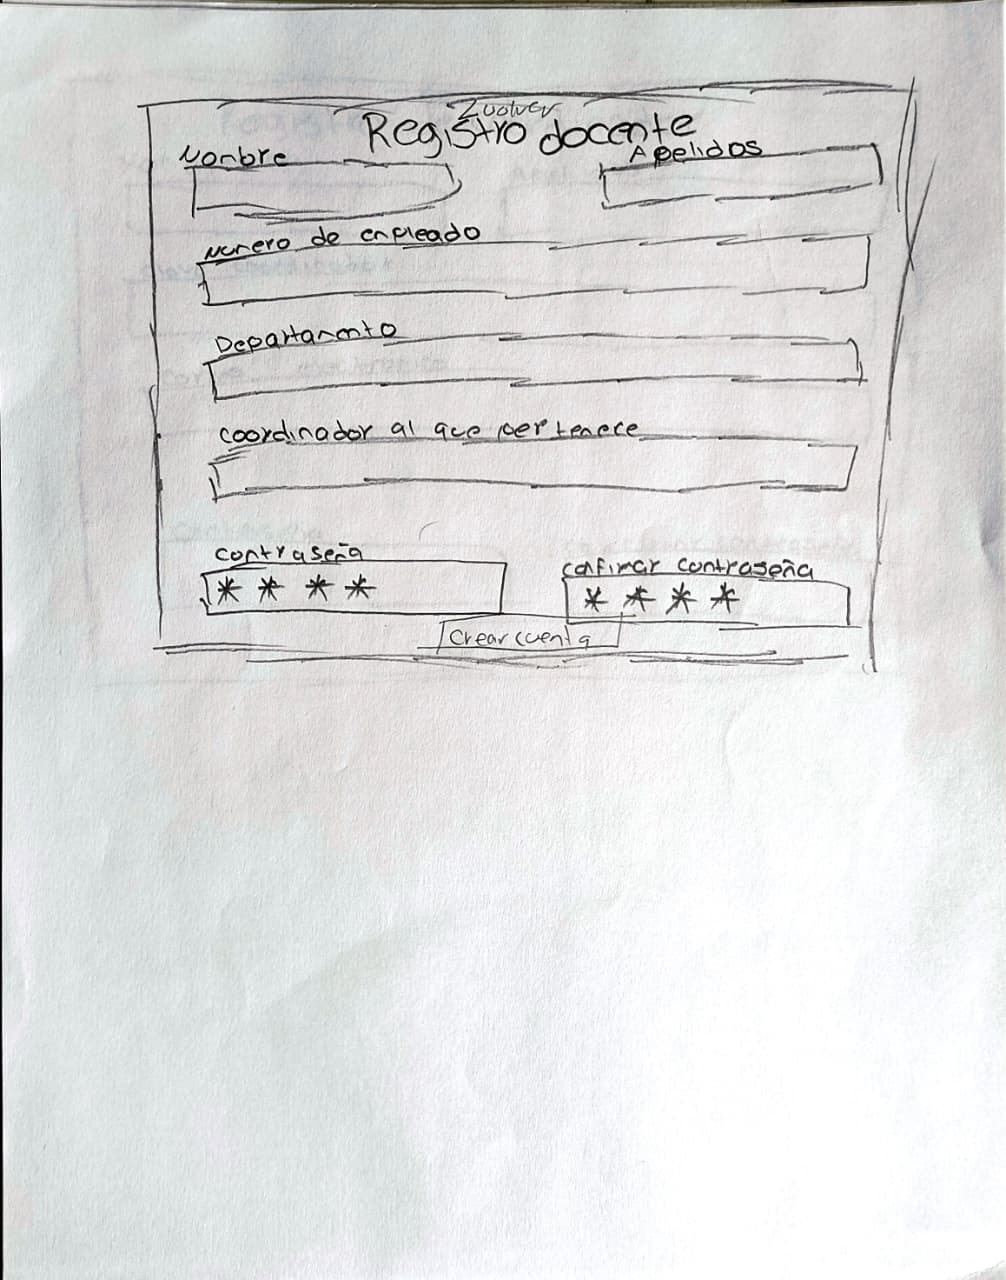 Zuolver
Registro docente
Nonbre
Apelidos
nunero de enpleado
Departamento
coordinador al que pertenece
contraseña
confirmar contraseña
* * * *
* * * *
Crear cuenta